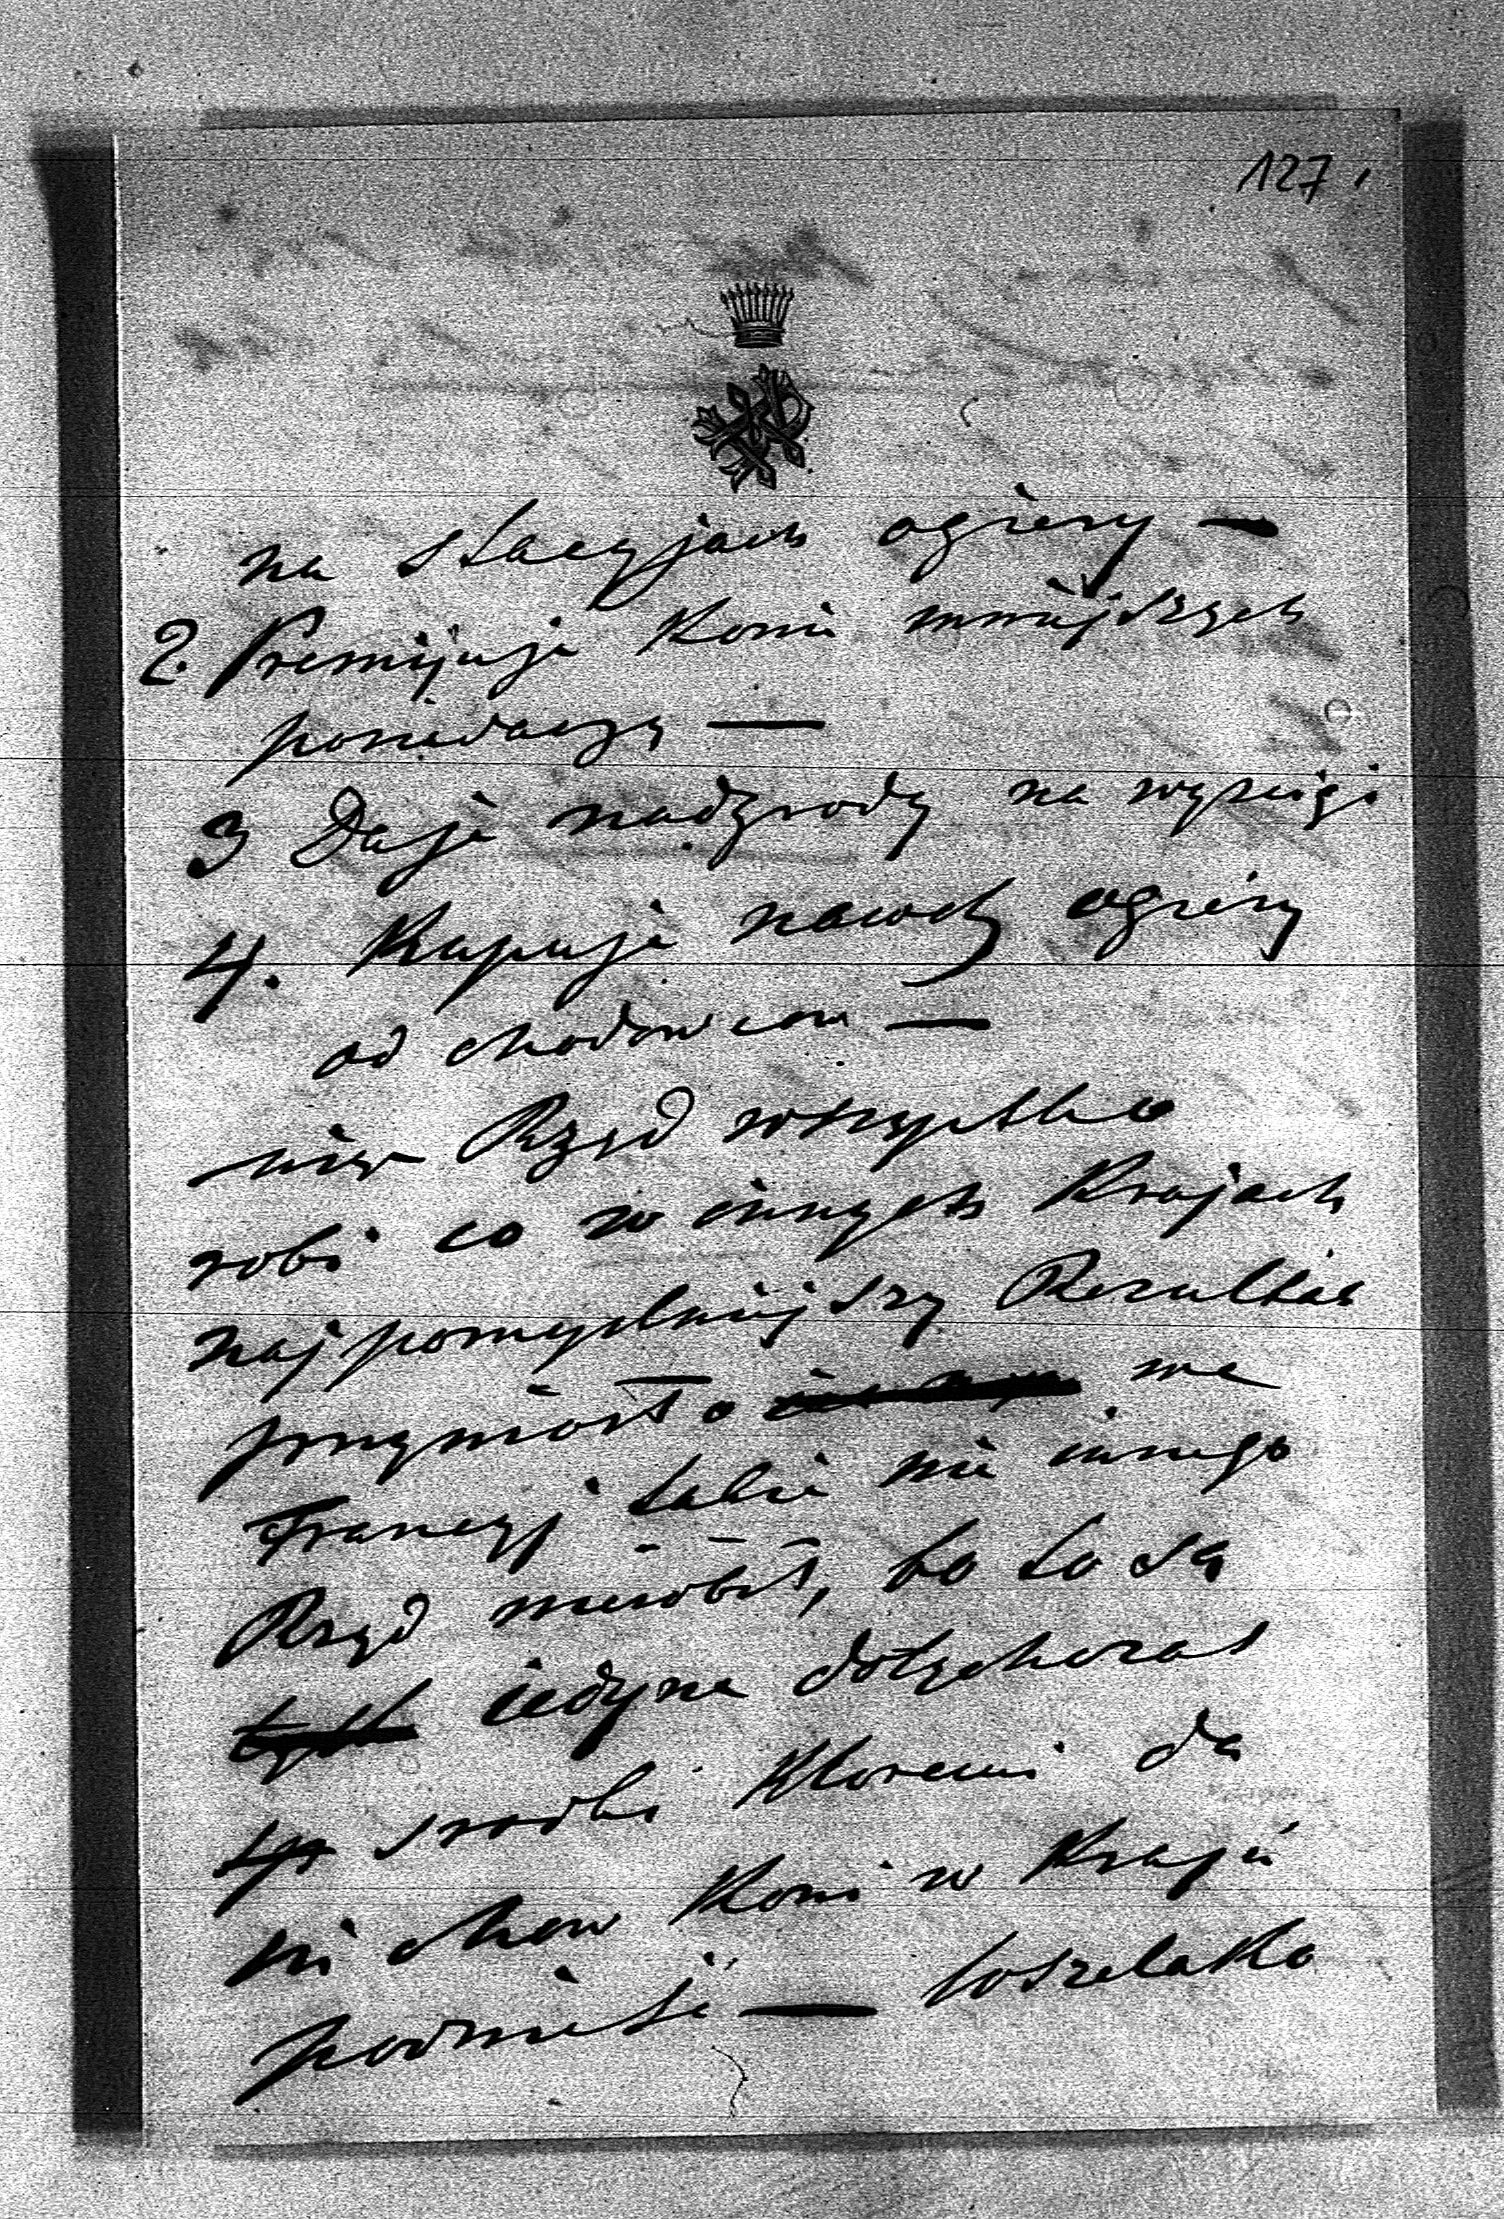 127
na stacyjach ogiery —
2. Premijuje Koni mniejszych
posiedaczy —
3 Daje nadgrody na wyscigi
4. Kupuje nawet ogiery
od chodowcow —
więc Rząd wszystko
robi co w innych Krajach
najpomyslniejszy Rezultat
przyniosło we
Francyj takie nic innego
Rząd nierobił, bo to są
jedyne dotychczas
srodki Ktoremi da
się chow Koni w Kraju
podnieść — wszelako